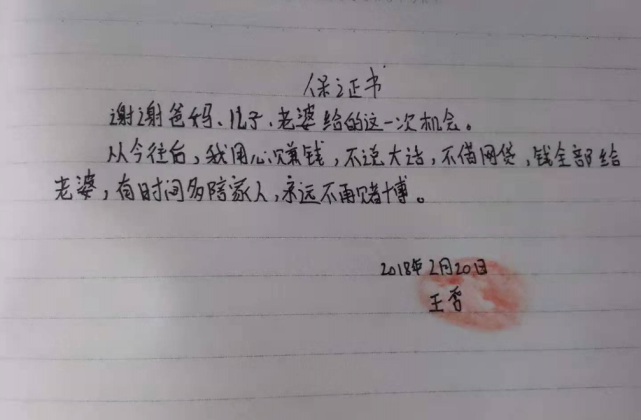 保证书
谢谢爸妈、儿子、老婆给的这一次机会。
从今往后，我用心赚钱，不说大话，不借网贷，钱全部给
老婆，有时间多陪家人，永远不再赌博。
2018年2月20日
王哲